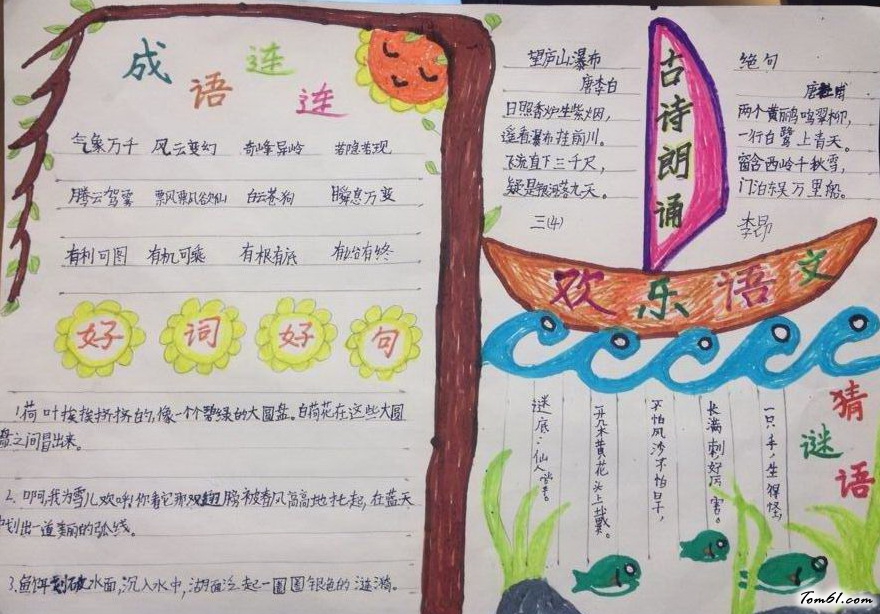 成语连连
气象万千 风云变幻 奇峰异岭 若隐若现
腾云驾雾 白云苍狗 瞬息万变
有利可图 有机可乘 有根有底 有始有终
好词好句
1.荷叶挨挨挤挤的,像一个个碧绿的大圆盘。白荷花在这些大圆
盘之间冒出来。
2.啊,我为雪儿欢呼!你看它那双翅膀被春风高高地托起,在蓝天
中划出一道美丽的弧线。
3.鱼饵划破水面,沉入水中,湖面泛起一圈圈银色的涟漪。
望庐山瀑布
唐李白
日照香炉生紫烟,
遥看瀑布挂前川。
飞流直下三千尺,
疑是银河落九天。
三(4)
古诗朗诵
绝句
唐杜甫
两个黄鹂鸣翠柳,
一行白鹭上青天。
窗含西岭千秋雪,
门泊东吴万里船。
李昂
欢乐语文
猜谜语
一只手,生得怪,
长满刺,好厉害。
不怕风沙不怕日干,
开朵黄花头上戴。
谜底:仙人掌。
Tom61.com